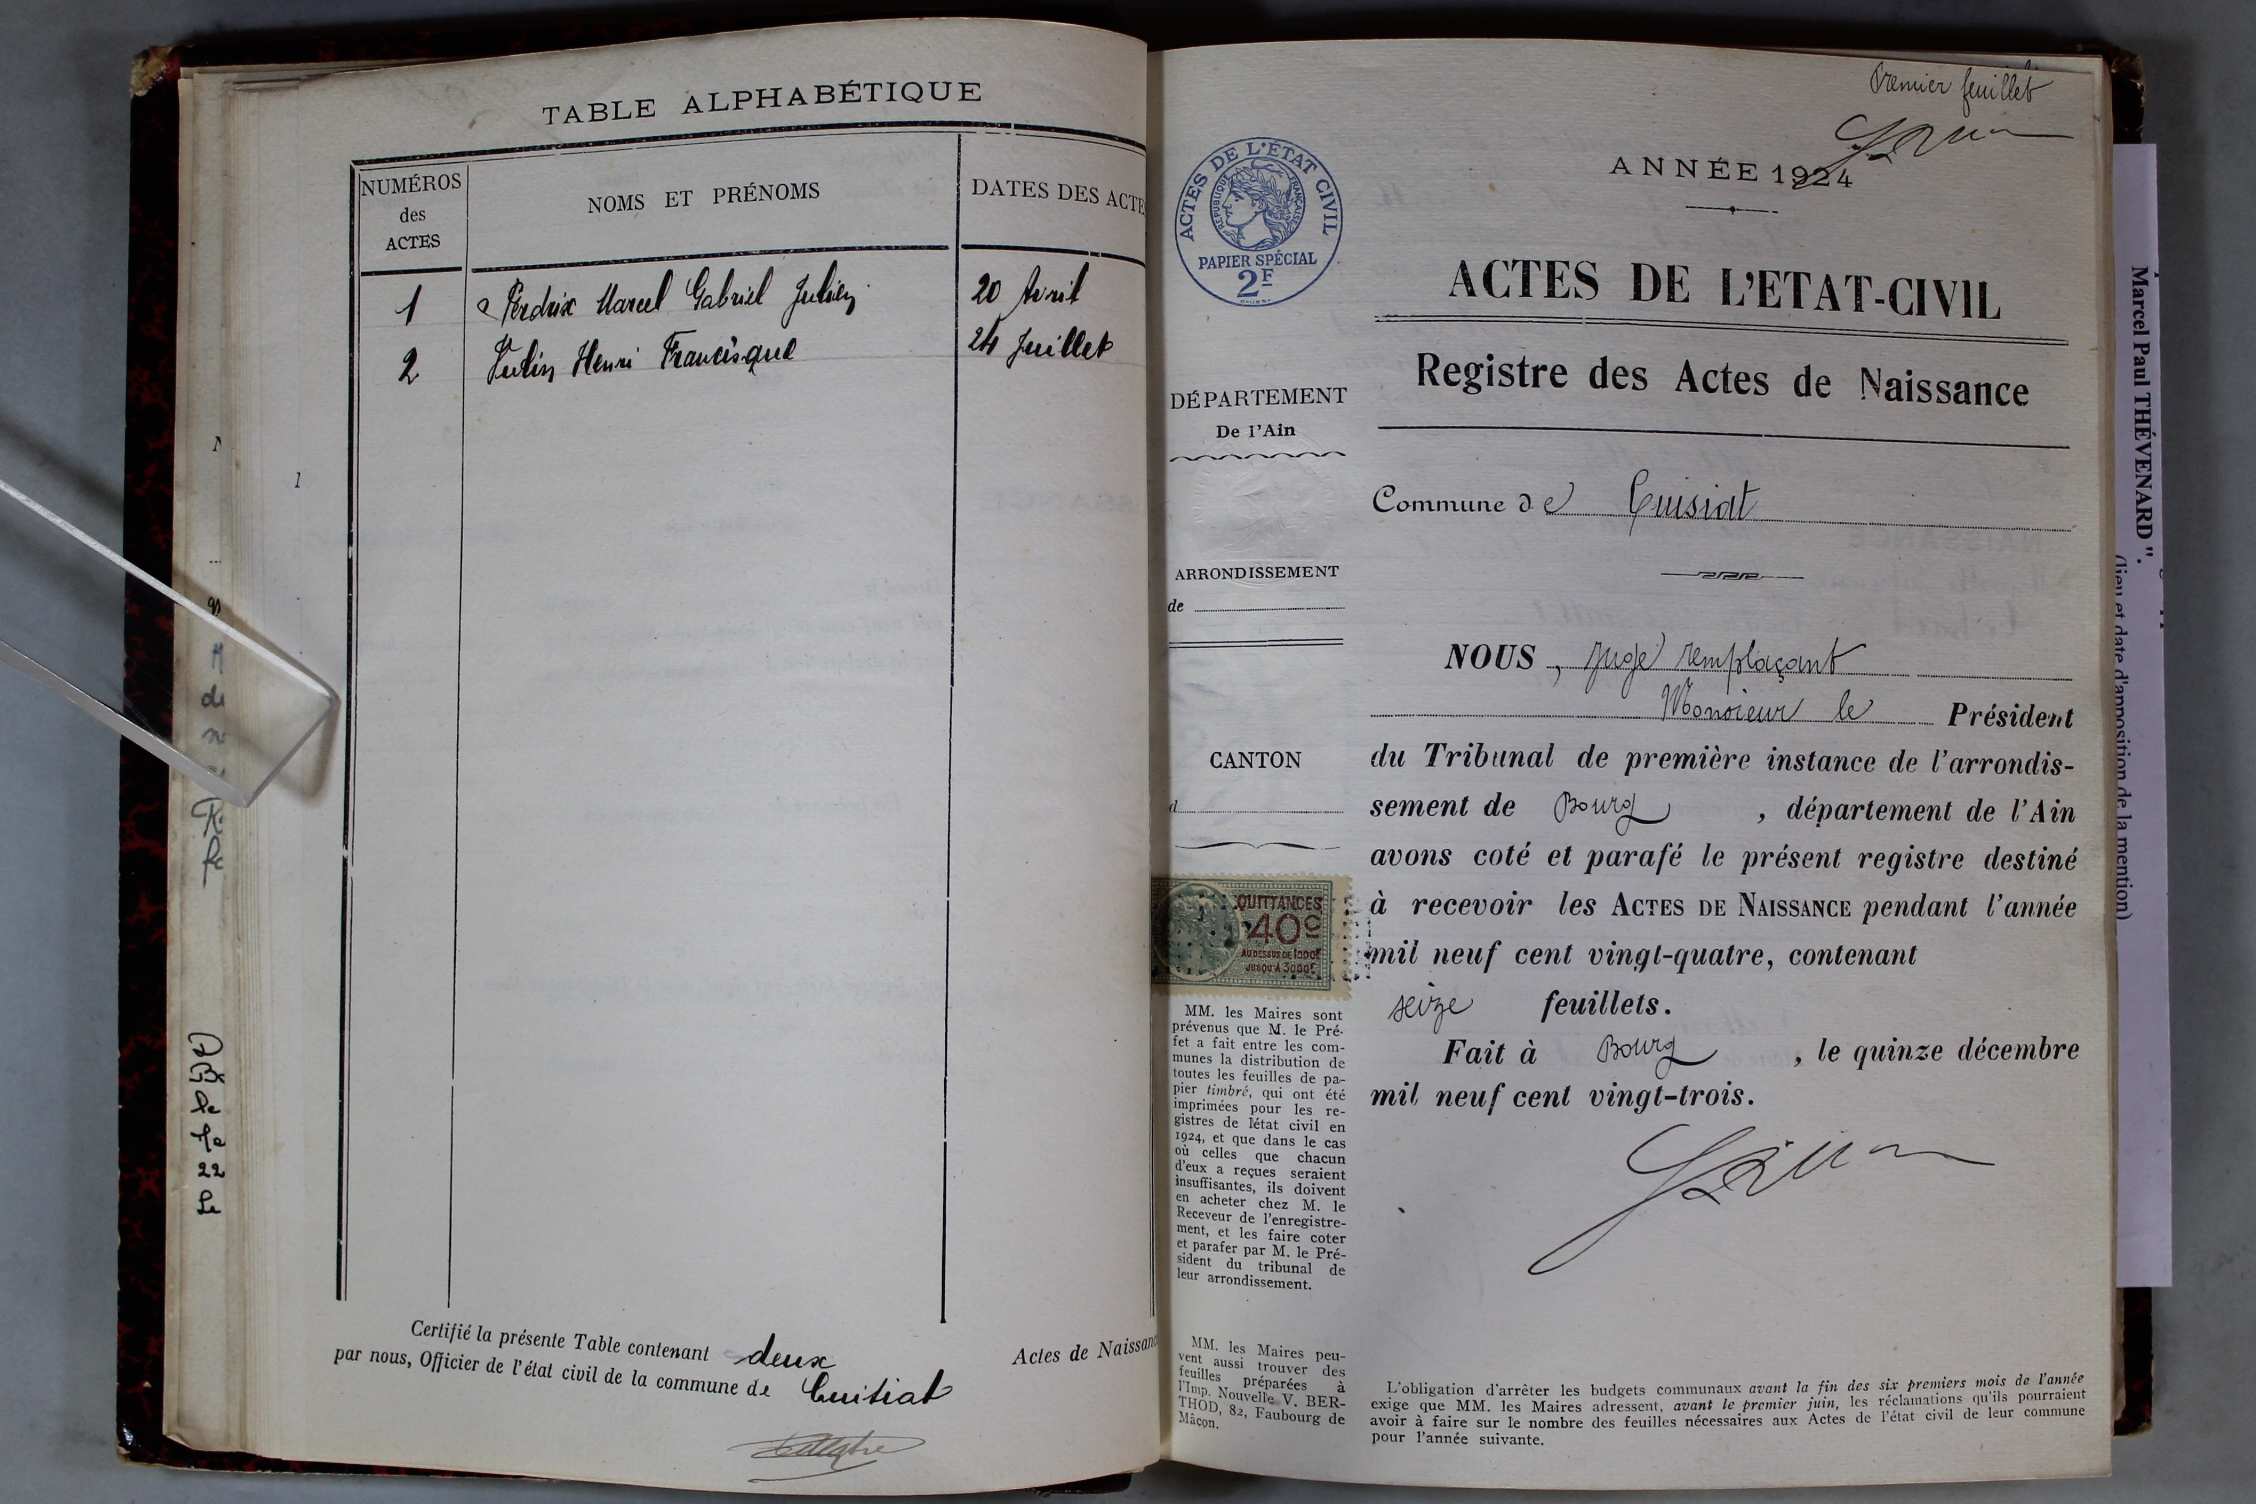 TABLE ALPHABÉTIQUE
NUMÉROS
des
ACTES
NOMS ET PRÉNOMS
DATES DES ACTE
1 Perdrix Marcel Gabriel Julien 20 Avril
2 Henri Francisque 24 Juillet
1
Certifié la présente Table contenant deux Actes de Naissanc
par nous, Officier de l'état civil de la commune de Cuisiat
Premier feuillet
ACTES DE L'ÉTAT CIVIL
RÉPUBLIQUE FRANÇAISE
PAPIER SPÉCIAL
2F
DÉPARTEMENT
De l'Ain
ARRONDISSEMENT
de
CANTON
d
QUITTANCES
40c
AU DESSUS DE 1000F
JUSQU'À 3000F
MM. les Maires sont
prévenus que M. le Pré-
fet a fait entre les com-
munes la distribution de
toutes les feuilles de pa-
pier timbré, qui ont été
imprimées pour les re-
gistres de l'état civil en
1924, et que dans le cas
où celles que chacun
d'eux a reçues seraient
insuffisantes, ils doivent
en acheter chez M. le
Receveur de l'enregistre-
ment, et les faire coter
et parafer par M. le Pré-
sident du tribunal de
leur arrondissement.
MM. les Maires peu-
vent aussi trouver des
feuilles préparées à
l'Imp. Nouvelle V. BER-
THOD, 82, Faubourg de
Mâcon.
ANNÉE 1924
ACTES DE L'ETAT-CIVIL
Registre des Actes de Naissance
Commune de Cuisiat
NOUS, Juge remplaçant
Monsieur le Président
du Tribunal de première instance de l'arrondis-
sement de Bourg, département de l'Ain
avons coté et parafé le présent registre destiné
à recevoir les ACTES DE NAISSANCE pendant l'année
mil neuf cent vingt-quatre, contenant
seize feuillets.
Fait à Bourg, le quinze décembre
mil neuf cent vingt-trois.
L'obligation d'arrêter les budgets communaux avant la fin des six premiers mois de l'année
exige que MM. les Maires adressent, avant le premier juin, les réclamations qu'ils pourraient
avoir à faire sur le nombre des feuilles nécessaires aux Actes de l'état civil de leur commune
pour l'année suivante.
Marcel Paul THÉVENARD".
(lieu et date d'apposition de la mention)